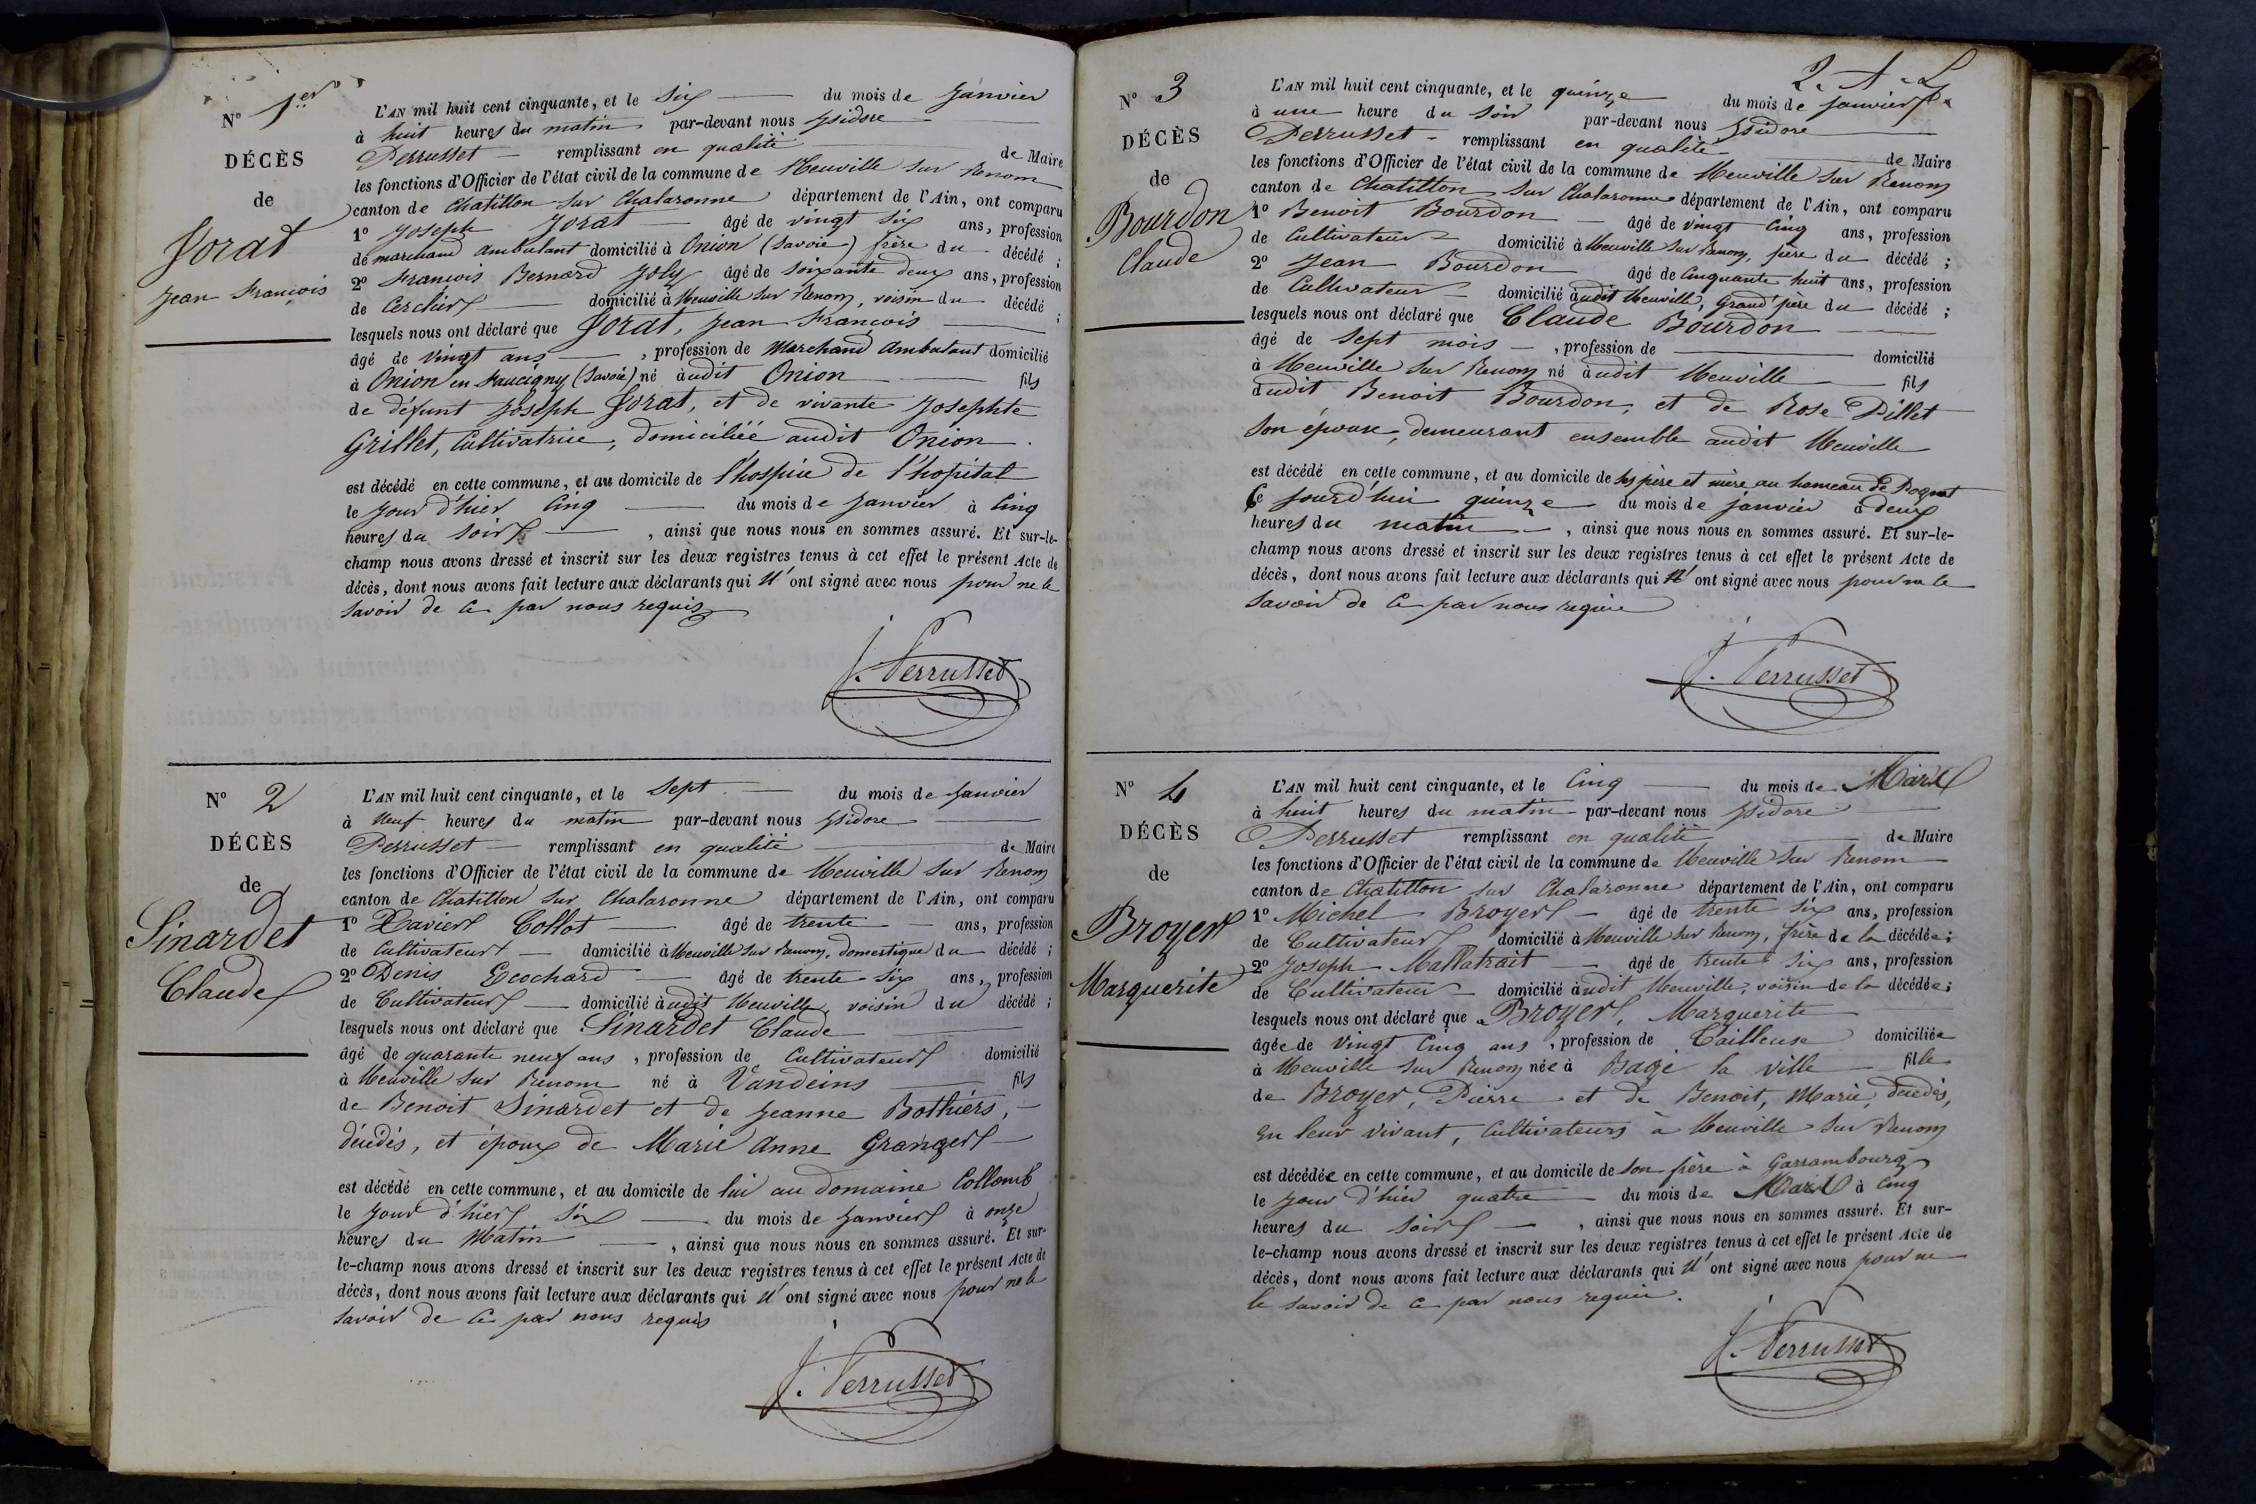 N° 1.er
DÉCÈS
de
Jorat
Jean François
L'AN mil huit cent cinquante, et le Six du mois de Janvier
à huit heures du matin par-devant nous Isidore
Perrusset remplissant en qualité de Maire
les fonctions d'Officier de l'état civil de la commune de Neuville sur Renom
canton de Chatillon sur Chalaronne département de l'Ain, ont comparu
1° Joseph Jorat âgé de vingt six ans, profession
de marchand ambulant domicilié à Onion (Savoie) frère du décédé ;
2° François Bernard Joly âgé de soixante deux ans, profession
de Cerclier domicilié à Neuville sur Renom, voisin du décédé ;
lesquels nous ont déclaré que Jorat, Jean François
âgé de vingt ans, profession de Marchand Ambulant domicilié
à Onion en Faucigny (Savoie) né audit Onion fils
de défunt Joseph Jorat, et de vivante Josephte
Grillet, Cultivatrice, domiciliée audit Onion.
est décédé en cette commune, et au domicile de l'hospice de l'hopital
le jour d'hier Cinq du mois de Janvier à Cinq
heures du soir, ainsi que nous nous en sommes assuré. Et sur-le-
champ nous avons dressé et inscrit sur les deux registres tenus à cet effet le présent Acte de
décès, dont nous avons fait lecture aux déclarants qui n'ont signé avec nous pour ne le
savoir de ce par nous requis
J. Perrusset
N° 2
DÉCÈS
de
Sinardet
Claude
L'AN mil huit cent cinquante, et le Sept du mois de Janvier
à Neuf heures du matin par-devant nous Isidore
Perrusset remplissant en qualité de Maire
les fonctions d'Officier de l'état civil de la commune de Neuville sur Renom
canton de Chatillon sur Chalaronne département de l'Ain, ont comparu
1° Xavier Collot âgé de trente ans, profession
de Cultivateur domicilié à Neuville sur Renom, domestique du décédé ;
2° Denis Ecochard âgé de trente six ans, profession
de Cultivateur domicilié audit Neuville, voisin du décédé ;
lesquels nous ont déclaré que Sinardet Claude
âgé de quarante neuf ans, profession de Cultivateur domicilié
à Neuville sur Renom né à Vandeins fils
de Benoit Sinardet et de Jeanne Bothiers,
décédés, et époux de Marie Anne Granger
est décédé en cette commune, et au domicile de lui au domaine Collomb
le jour d'hier six du mois de Janvier à onze
heures du Matin, ainsi que nous nous en sommes assuré. Et sur-
le-champ nous avons dressé et inscrit sur les deux registres tenus à cet effet le présent Acte de
décès, dont nous avons fait lecture aux déclarants qui n'ont signé avec nous pour ne le
savoir de ce par nous requis
J. Perrusset
N° 3
DÉCÈS
de
Bourdon
Claude
L'AN mil huit cent cinquante, et le quinze du mois de Janvier
à une heure du soir par-devant nous Isidore
Perrusset remplissant en qualité de Maire
les fonctions d'Officier de l'état civil de la commune de Neuville sur Renom
canton de Chatillon sur Chalaronne département de l'Ain, ont comparu
1° Benoit Bourdon âgé de vingt Cinq ans, profession
de Cultivateur domicilié à Neuville sur Renom, père du décédé ;
2° Jean Bourdon âgé de Cinquante huit ans, profession
de Cultivateur domicilié audit Neuville, Grand'père du décédé ;
lesquels nous ont déclaré que Claude Bourdon
âgé de Sept mois, profession de domicilié
à Neuville sur Renom né audit Neuville fils
audit Benoit Bourdon, et de Rose Pillet
son épouse, demeurant ensemble audit Neuville
est décédé en cette commune, et au domicile de ses père et mère au hameau de
Ce Jourd'hui quinze du mois de janvier à deux
heures du matin, ainsi que nous nous en sommes assuré. Et sur-le-
champ nous avons dressé et inscrit sur les deux registres tenus à cet effet le présent Acte de
décès, dont nous avons fait lecture aux déclarants qui n'ont signé avec nous pour ne le
savoir de ce par nous requis
J. Perrusset
N° 4
DÉCÈS
de
Broyer
Marguerite
L'AN mil huit cent cinquante, et le Cinq du mois de Mars
à huit heures du matin par-devant nous Isidore
Perrusset remplissant en qualité de Maire
les fonctions d'Officier de l'état civil de la commune de Neuville sur Renom
canton de Chatillon sur Chalaronne département de l'Ain, ont comparu
1° Michel Broyer âgé de trente six ans, profession
de Cultivateur domicilié à Neuville sur Renom, frère de la décédée ;
2° Joseph Mallatrait âgé de trente six ans, profession
de Cultivateur domicilié audit Neuville, voisin de la décédée ;
lesquels nous ont déclaré que Broyer, Marguerite
âgée de vingt Cinq ans, profession de Tailleuse domiciliée
à Neuville sur Renom née à Bagé la ville fille
de Broyer, Pierre et de Benoit, Marie, décédés,
en leur vivant, Cultivateurs à Neuville sur Renom
est décédée en cette commune, et au domicile de son frère à Garrambourg
le jour d'hier quatre du mois de Mars à Cinq
heures du soir, ainsi que nous nous en sommes assuré. Et sur-
le-champ nous avons dressé et inscrit sur les deux registres tenus à cet effet le présent Acte de
décès, dont nous avons fait lecture aux déclarants qui n'ont signé avec nous pour ne
le savoir de ce par nous requis.
J. Perrusset